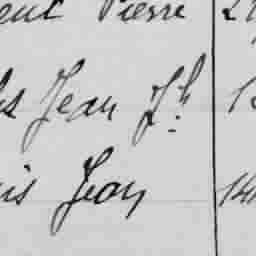 ent Pierre 2
s Jean Jh 1
is Jean 14